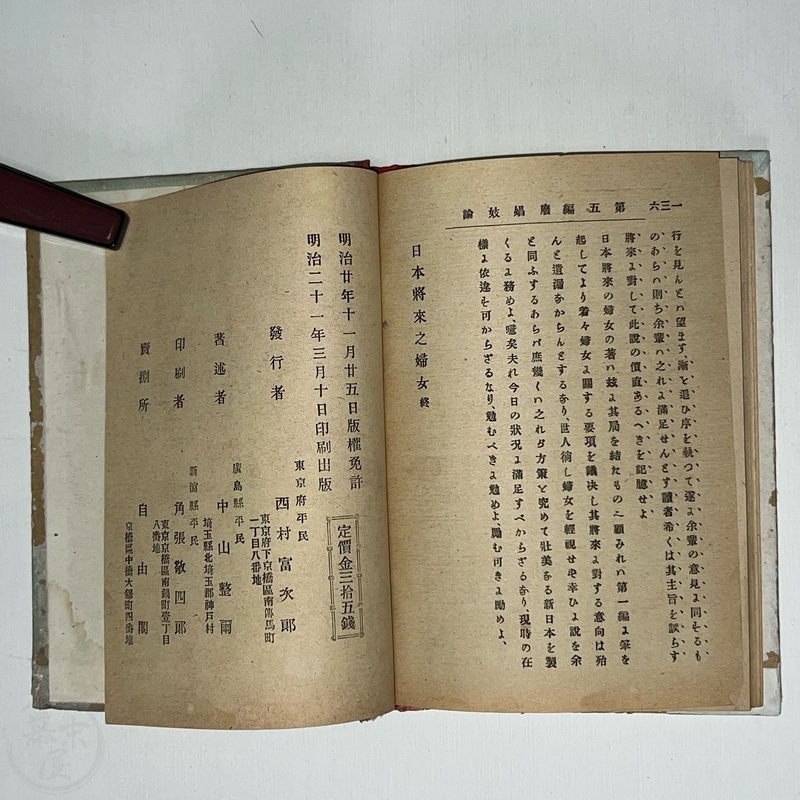 一三六 第五編廢娼妓論
行を見んとハ望ます、漸と追ひ序を執つて遂ょ余輩の意見ょ同せるも
のあらハ則ち余輩ハ之れょ滿足せんとす讀者希くは其主旨を誤らす
將來ょ對して此說の價直あるへきを記臆せよ
日本將來の婦女の著ハ玆ょ其局を結たもの二顧みれハ第一編ょ筆を
起してより着々婦女ょ關する要項を議決し其將來ょ對する意向は殆
んと遺漏なからんとするなり、世人徜し婦女を輕視せす幸ひょ說を余
と同ふするあらバ庶幾くハ之れヵ方策と究めて壯美なる新日本を製
くるょ務めよ、噫矣夫れ今日の狀況ょ滿足すべからざるなり、現時の在
樣ょ依違を可からざるなり、勉むべきょ勉めよ、勵む可きょ勵めよ、
日本將來之婦女 終
明治廿年十一月廿五日版權免許
明治二十一年三月十日印刷出版
定價金三拾五錢
東京府平民
發行者 西村富次郎
東京府下京橋區南傳馬町
一丁目八番地
廣島縣平民
著述者 中山整爾
埼玉縣北埼玉郡神戶村
新潟縣平民
印刷者 角張敬四郎
東京京橋區南鍋町壹丁目
八番地
賣捌所 自由閣
京橋區中橋大鋸町四番地